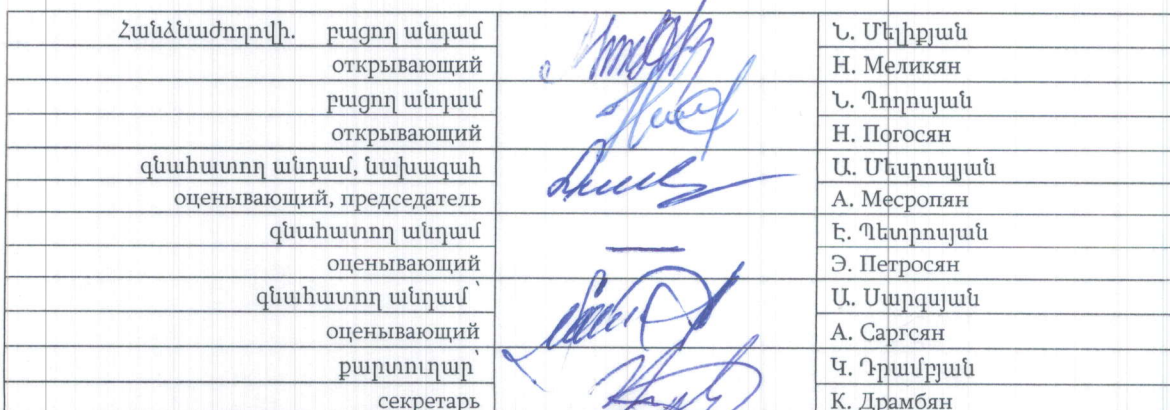 Հանձնաժողովի. բացող անդամ Ն. Մելիքյան
открывающий Н. Меликян
բացող անդամ Ն. Պողոսյան
открывающий Н. Погосян
գնահատող անդամ, նախագահ Ա. Մեսրոպյան
оценивающий, председатель А. Месропян
գնահատող անդամ Է. Պետրոսյան
оценывающий Э. Петросян
գնահատող անդամ՝ Ա. Սարգսյան
оценывающий А. Саргсян
քարտուղար՝ Կ. Դրամբյան
секретарь К. Драмбян